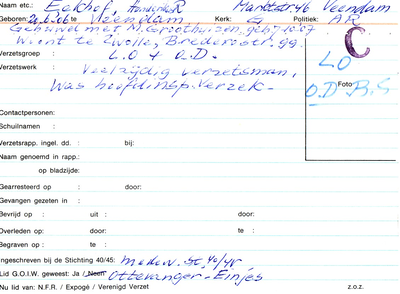 Naam etc.: Eekhof, Hendrik R Marktstr. 46 Veendam
Geboren: 20.6.'06 te Veendam Kerk: G Politiek: AR
Gehuwd met N. Groothuizen, geb. 10.07
Woont te Zwolle, Brederostr. 99.
Verzetsgroep : L.O + O.D.
Verzetswerk : Veelzijdig verzetsman,
Was hoofdinsp. Verzek-
C
LO
Foto
O.D. B.S
Contactpersonen:
Schuilnaam :
Verzetsrapp. ingel. dd. : bij:
Naam genoemd in rapp.:
op bladzijde:
Gearresteerd op : door:
Gevangen gezeten in :
Bevrijd op : uit : door:
Overleden op: door: te :
Begraven op : te :
Ingeschreven bij de Stichting 40/45: medew. St. 40/45
Lid G.O.I.W. geweest: Ja/Neen Ottevanger-Einjes
Nu lid van: N.F.R. / Expogé / Verenigd Verzet z.o.z.